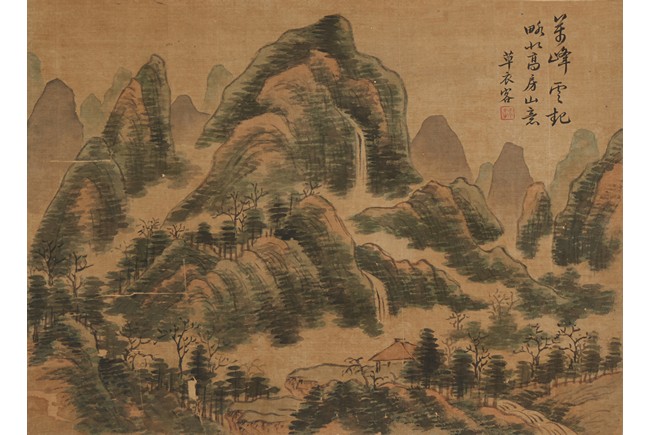 萬峰雲起
略似高房山意
草衣客